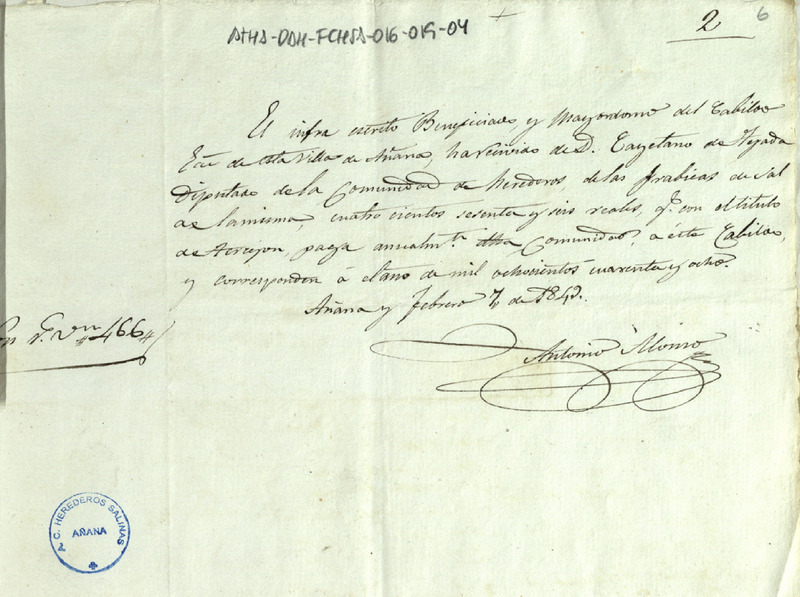 ATHA-DAH-FCHSA-016-019-04
2
6
El infra escrito Beneficiado, y Mayordomo del Cabildo
Ecco de esta Villa de Añana, ha recivido de D. Cayetano de Tejada
Diputado de la Comunidad de Herederos, de las frabicas de sal
de la misma, cuatro cientos sesenta y seis reales, q.e con el titulo
de paga anualm.te dha Comunidad, a este Cabildo,
y corresponden á el ano de mil ochocientos cuarenta y ocho.
Añana y Febrero 7 de 1849.
Son r.s v.n #466#
Antonio Alonso
A. C. HEREDEROS SALINAS
AÑANA